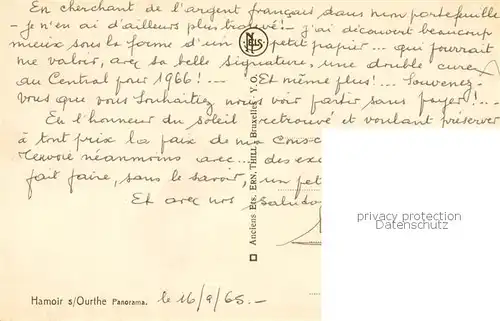 En cherchant de l'argent français dans mon portefeuille
- je n'en ai d'ailleurs plus trouvé! - j'ai découvert beaucoup
mieux sous la forme d'un petit papier... qui pourrait
me valoir, avec sa belle signature, une double cure
au Central pour 1966! --- Et même plus!... Souvenez-
vous que vous souhaitiez nous voir partir sans payer!..
En l'honneur du soleil retrouvé et voulant préserver
à tout prix la paix de ma consc
renvoie néanmoins avec... des exc
fait faire, sans le savoir, un pet
Et avec nos saluto
NELS
Anciens Ets. ERN. THILL, Bruxelles
privacy protection
www.ansichtskarten-center.de
Hamoir s/Ourthe Panorama. le 16/9/65.-